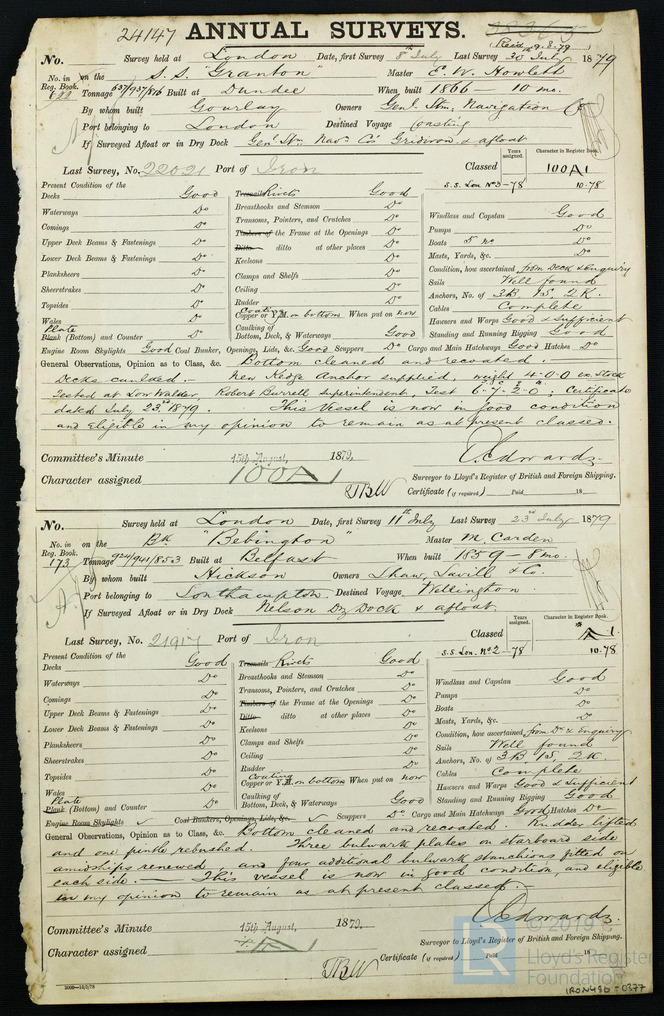 24147 ANNUAL SURVEYS.
Recd 9.8.79
No. Survey held at London Date, first Survey 8th July Last Survey 30 July 1879
No. in Reg. Book. on the S.S. "Granton" Master E. W. Howlett
622 Tonnage 657/937/816 Built at Dundee When built 1866 10 mo.
By whom built Gourlay Owners Genl. Stm. Navigation Co
Port belonging to London Destined Voyage Coasting
If Surveyed Afloat or in Dry Dock Genl Stm Navn Co's Gridiron & afloat
Last Survey, No. 22021 Port of Iron
Years assigned. Character in Register Book.
Classed 100A1
S.S. Lon. No 3-78 10.78
Present Condition of the
Decks Good
Waterways Do
Comings Do
Upper Deck Beams & Fastenings Do
Lower Deck Beams & Fastenings Do
Planksheers Do
Sheerstrakes Do
Topsides Do
Wales Do
Plate
Plank (Bottom) and Counter Do
Treenails Rivets Good
Breasthooks and Stemson Do
Transoms, Pointers, and Crutches Do
Timbers of the Frame at the Openings Do
Ditto ditto at other places Do
Keelsons Do
Clamps and Shelfs Do
Ceiling Do
Rudder Do
Coating
Copper or Y.M. on bottom When put on now
Caulking of
Bottom, Deck, & Waterways Good
Windlass and Capstan Good
Pumps Do
Boats 5 no Do
Masts, Yards, &c. Do
Condition, how ascertained from Deck & Enquiry
Sails Well found
Anchors, No. of 3B, 1S, 2K.
Cables Complete
Hawsers and Warps Good & Sufficient
Standing and Running Rigging Good
Engine Room Skylights Good Coal Bunker, Openings, Lids, &c. Good Scuppers Do Cargo and Main Hatchways Good Hatches Do
General Observations, Opinion as to Class, &c. Bottom cleaned and recoated.
Decks caulked. New Kedge Anchor supplied, weight 4-0-0 ex Stock
Tested at Low Walker, Robert Burrell Superintendent, Test 6-7-2-0; Certificate
dated July 23rd 1879. This Vessel is now in good condition
and Eligible in my opinion to remain as at present classed.
Committee's Minute 15th August, 1879.
Character assigned 100A1
Edwards
Surveyor to Lloyd's Register of British and Foreign Shipping.
Certificate (if required) Paid 18
No. Survey held at London Date, first Survey 11th July Last Survey 23rd July 1879
No. in Reg. Book. on the Bk "Bebington" Master M. Carden
173 Tonnage 924/941/853 Built at Belfast When built 1859 - 8 mo.
By whom built Hickson Owners Shaw, Savill & Co.
Port belonging to Southampton Destined Voyage Wellington
If Surveyed Afloat or in Dry Dock Nelson Dry Dock & afloat
Last Survey, No. 21917 Port of Iron
Years assigned. Character in Register Book.
Classed A 1.
S.S. Lon. No 2-78 10-78
Present Condition of the
Decks Good
Waterways Do
Comings Do
Upper Deck Beams & Fastenings Do
Lower Deck Beams & Fastenings Do
Planksheers Do
Sheerstrakes Do
Topsides Do
Wales Do
Plate
Plank (Bottom) and Counter Do
Treenails Rivets Good
Breasthooks and Stemson Do
Transoms, Pointers, and Crutches Do
Timbers of the Frame at the Openings Do
Ditto ditto at other places Do
Keelsons Do
Clamps and Shelfs Do
Ceiling Do
Rudder Do
Coating
Copper or Y.M. on bottom When put on now
Caulking of
Bottom, Deck, & Waterways Good
Windlass and Capstan Good
Pumps Do
Boats Do
Masts, Yards, &c. Do
Condition, how ascertained from Dk & Enquiry
Sails Well found
Anchors, No. of 3B, 1S, 2K
Cables Complete
Hawsers and Warps Good & Sufficient
Standing and Running Rigging Good
Engine Room Skylights Coal Bunkers, Openings, Lids, &c. Scuppers Do Cargo and Main Hatchways Good Hatches Do
General Observations, Opinion as to Class, &c. Bottom cleaned and recoated. Rudder lifted
and one pintle rebushed. Three bulwark plates on starboard side
amidships renewed, and four additional bulwark stanchions fitted on
each side. This vessel is now in good condition and eligible
in my opinion to remain as at present classed.
Committee's Minute 15th August, 1879.
Character assigned A1
Edwards.
Surveyor to Lloyd's Register of British and Foreign Shipping.
Certificate (if required) Paid 18
© 2019
LR
Lloyd's Register
Foundation
IRON490-0377